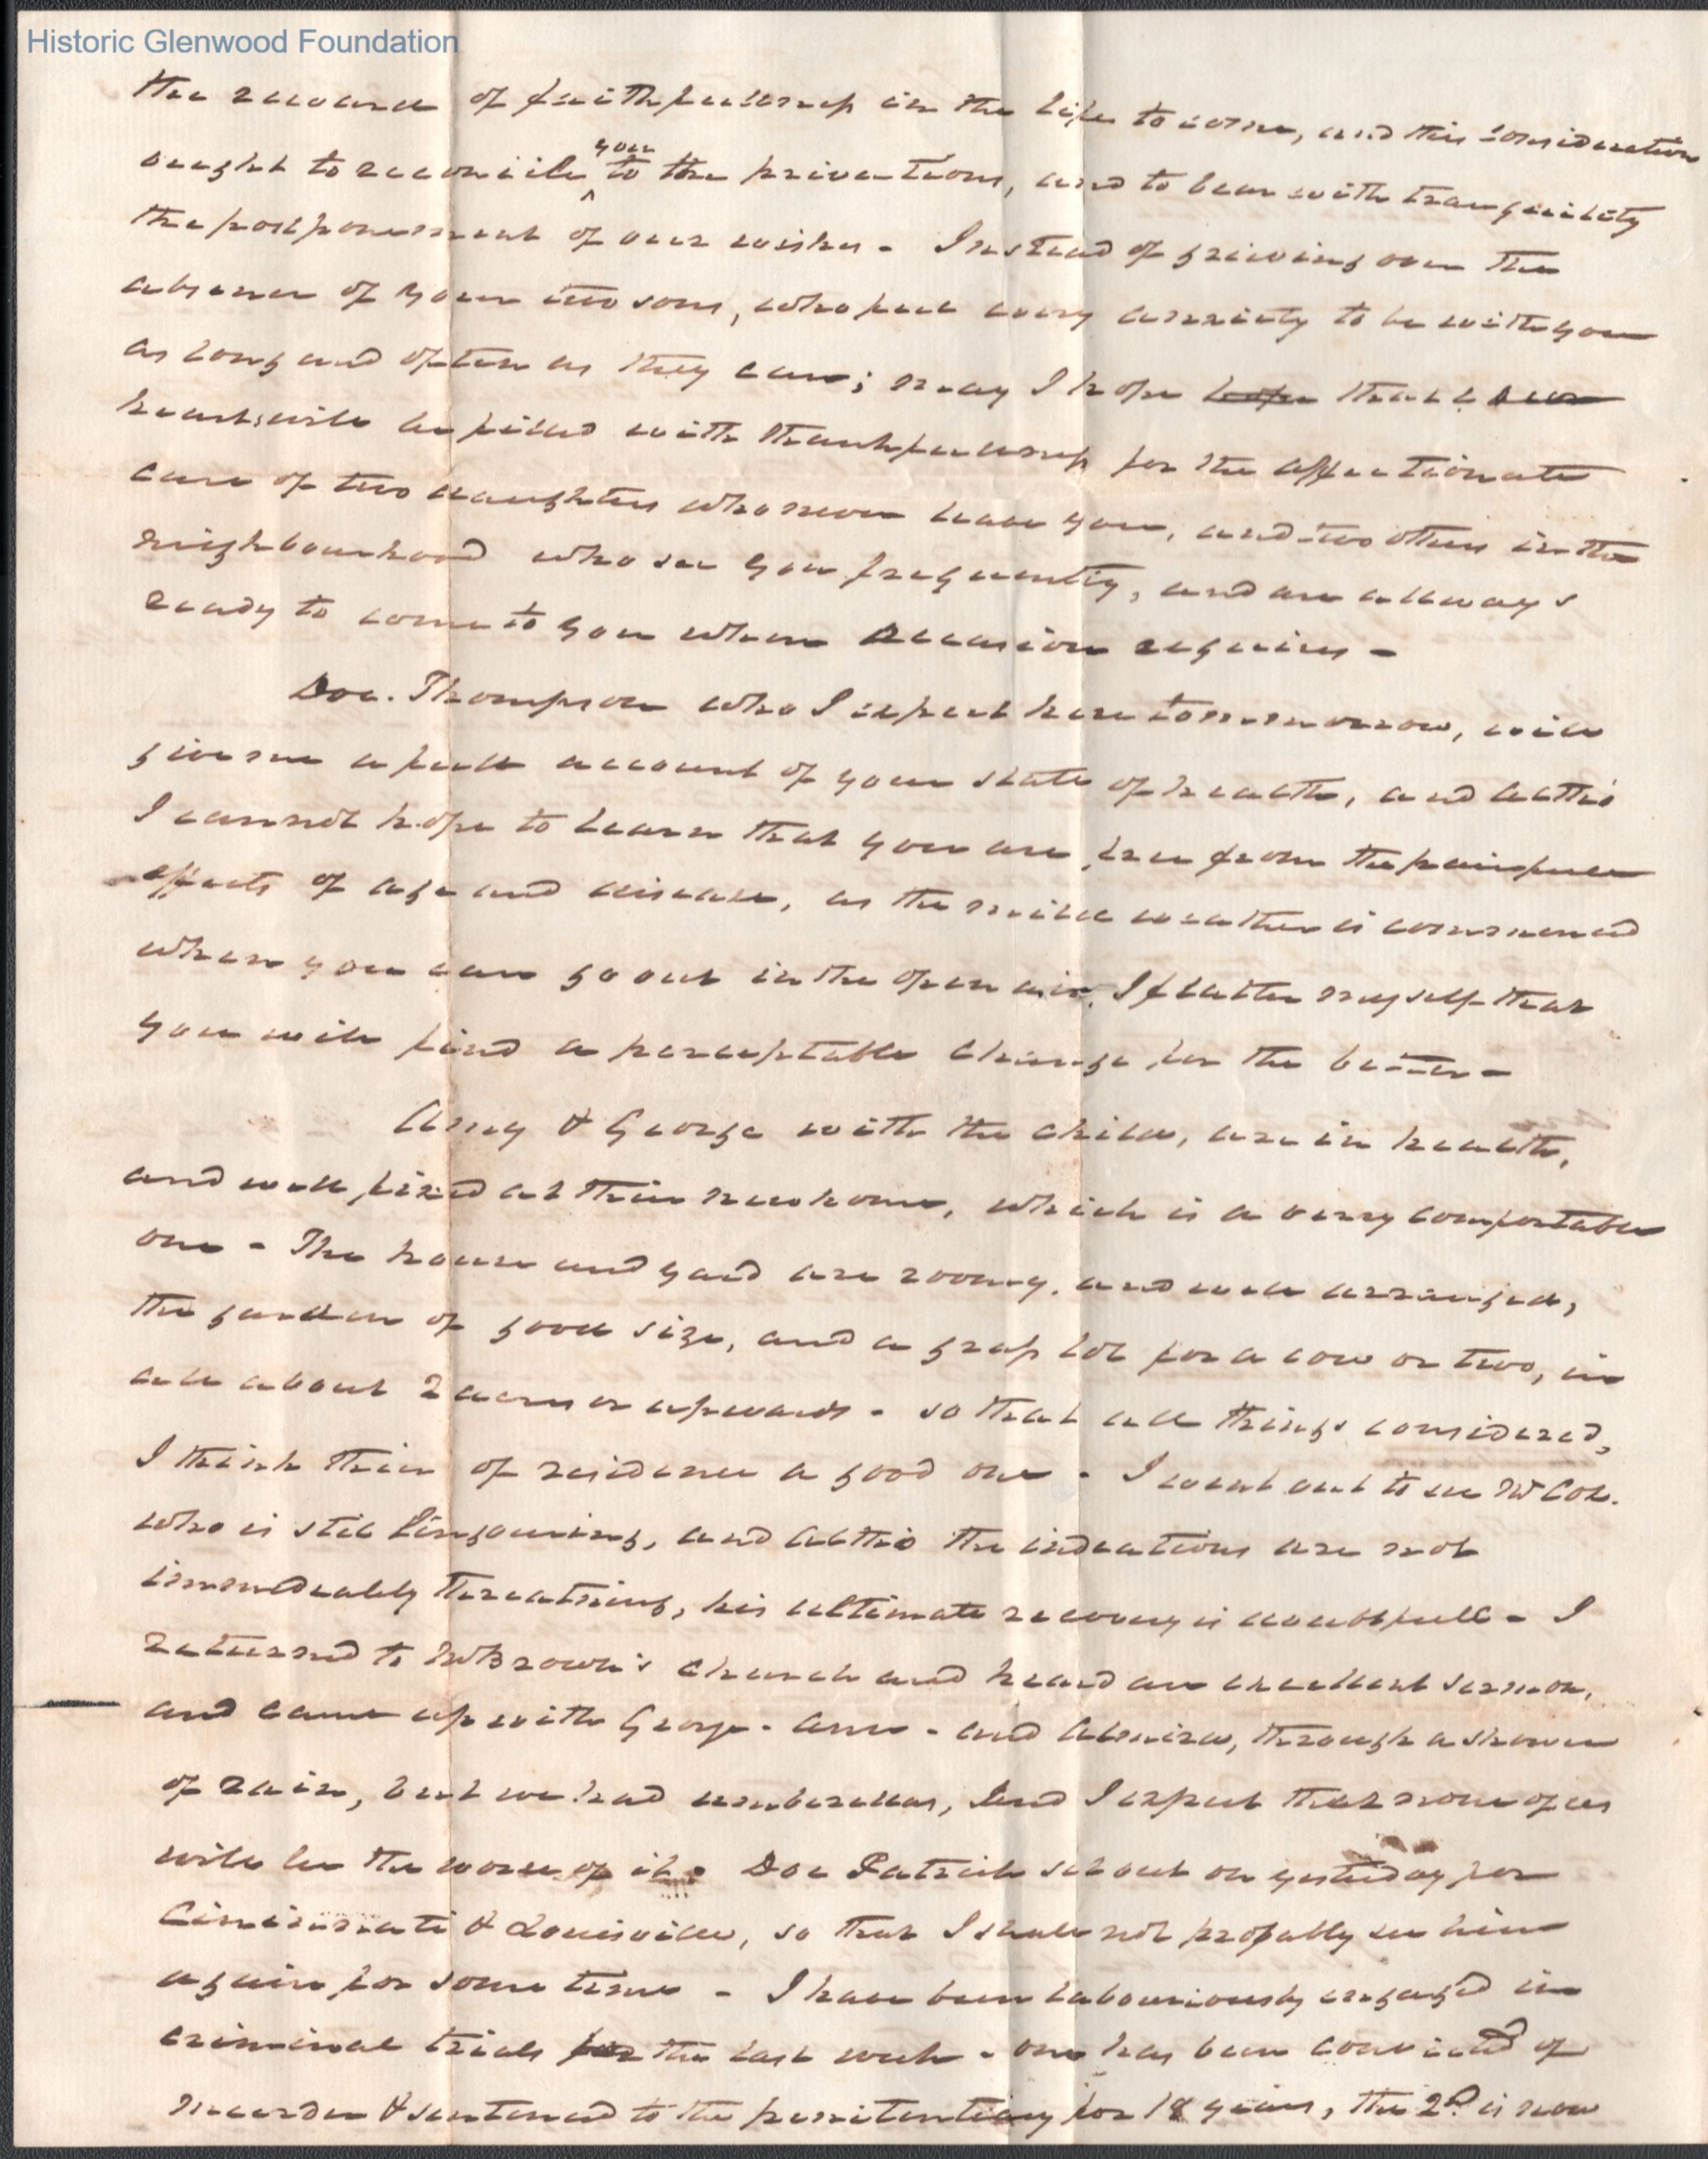 Historic Glenwood Foundation
the reward of faithfulness in the life to come, and this consideration
ought to reconcile you to the privations, and to bear with tranquility
the postponement of our wishes - Instead of grieving over the
absence of your two sons, who feel every anxiety to be with you
as long and often as they can; may I hope hope that
hearts will be filled with thankfulness for the affectionate
care of two daughters who never leave you, and two others in the
neighbourhood who see you frequently, and are allways
ready to come to you when occasion requires -
Doc. Thompson who I expect here tommorrow, will
give me a full account of your state of health, and altho
I cannot hope to learn that you are free from the painfull
effects of age and disease, as the mild weather is commenced
when you can go out in the open air, I flatter myself that
you will find a perceptable change for the better -
Amy & George with the child, are in health,
and well fixed at their new home, which is a very comfortable
one - The house and yard are roomy, and well arranged,
the garden of good size, and a grass lot for a cow or two, in
all about 2 acres or upwards - so that all things considered,
I think their of residence a good one - I went out to see Mr Col.
who is still lingouring, and altho the indcations are not
immediately threatning, his ultimate recovery is doubtfull - I
returned to Mr Brown's church and heard an excellent sermon,
and came up with George - Ann - and Almira, through a shower
of rain, but we had umberellas, and I expect that none of us
will be the worse of it. Doc Patrick set out on yesterday for
Cincinnati & Louisville, so that I shall not probably see him
again for some time - I have been labouriously engaged in
criminal trials for the last week - one has been convicted of
murder & sentenced to the penitentiary for 18 years, the 2d is now